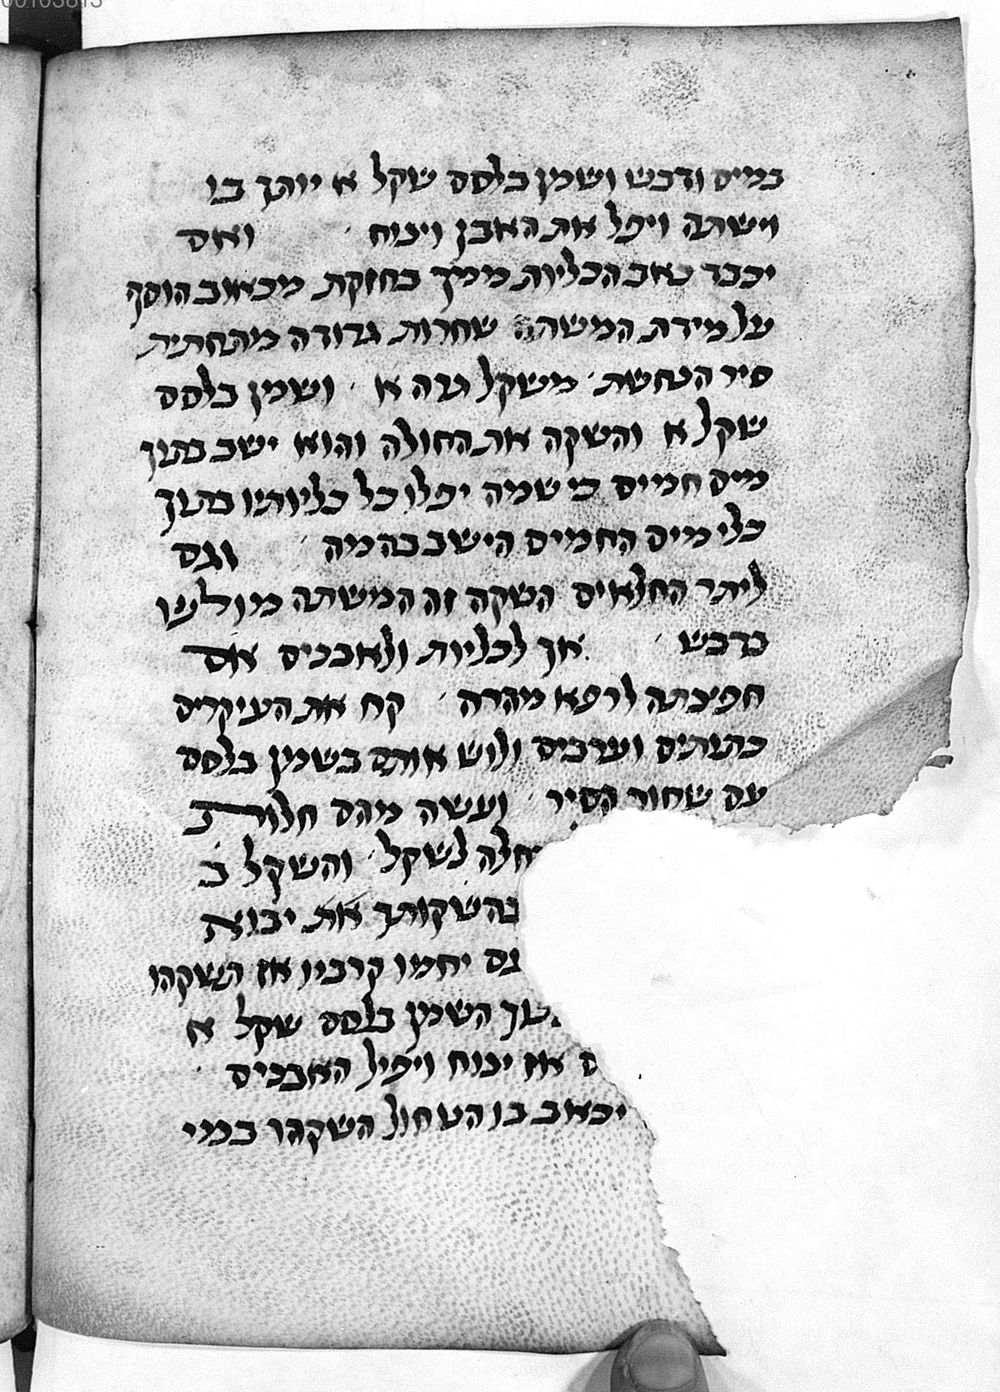 00103813
במים ודבש ושמן בלסם שקל א יותך בו
וישתה ויפל את האבן וינוח ואם
יכבד כאב הכליות ממך בחזקת מכאוב הוסף
על מידת המשתה שחרות גרודה מתחתית
סיר הנחשת משקל גרה א ושמן בלסם
שקל א והשקה את החולה והוא ישב בתוך
מים חמים כי שמה יפלו כל כליותיו בתוך
כלי מים החמים הישב בהמיה וגם
ליתר החלאים השקה זה המשתה
בדבש אך לכליות ולאבנים אם
חפצתה לרפא מהרה קח את העיקרים
כתותים וערבים ולוש אותם בשמן בלסם
עם שחור הסיר ועשה מהם חלות
חלה לשקל והשקל ב
בהשקותך את יבוא
גם יחמו קרביו אז תשקהו
תוך השמן בלסם שקל א
ם אז ינוח ויפיל האבנים
יכאב בו הטחול השקהו במי